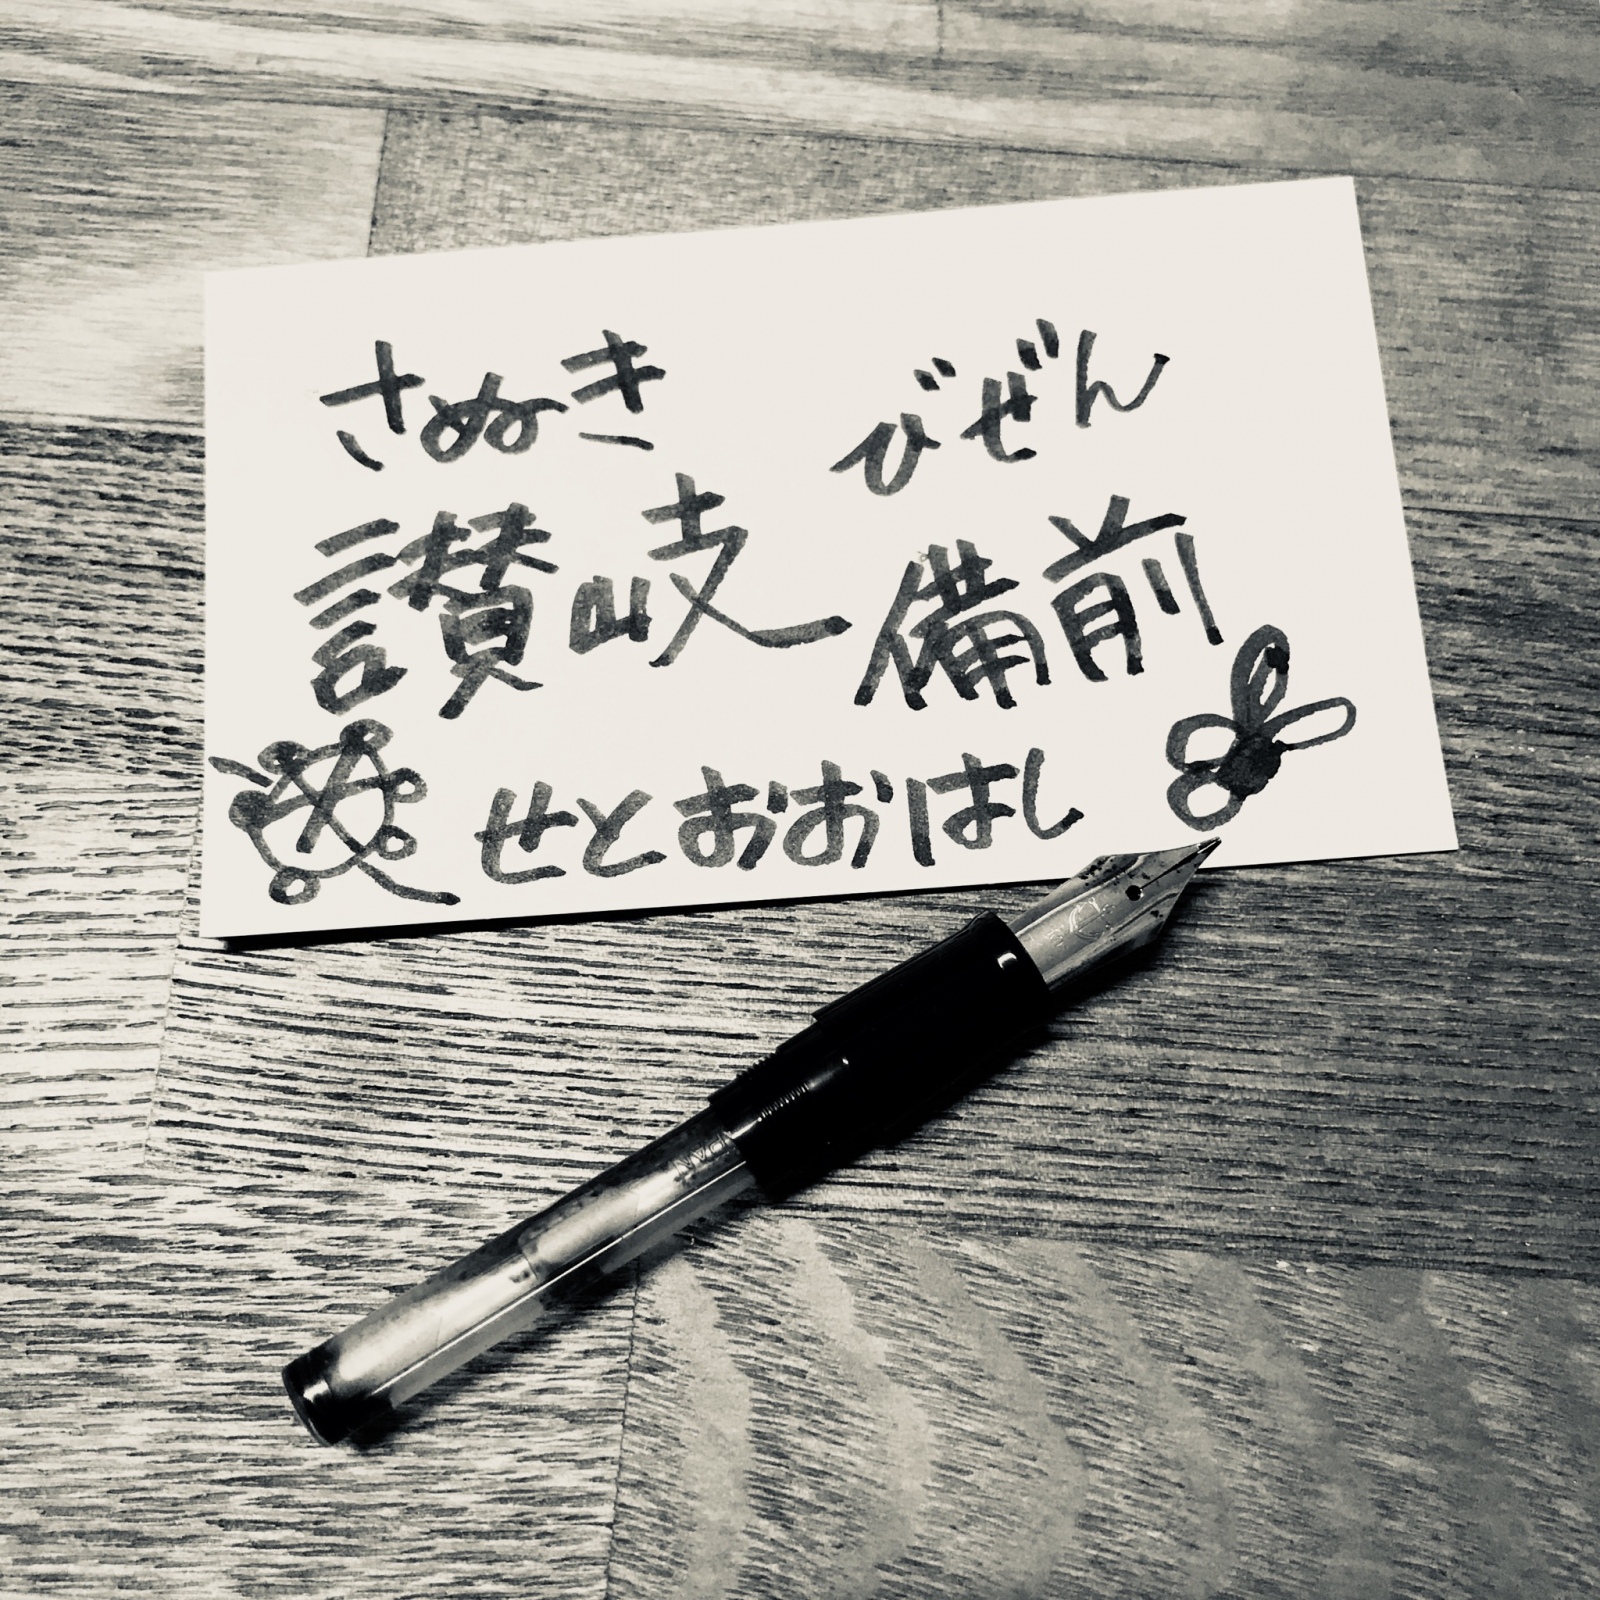 さぬき びぜん
讃岐 備前
せとおおはし